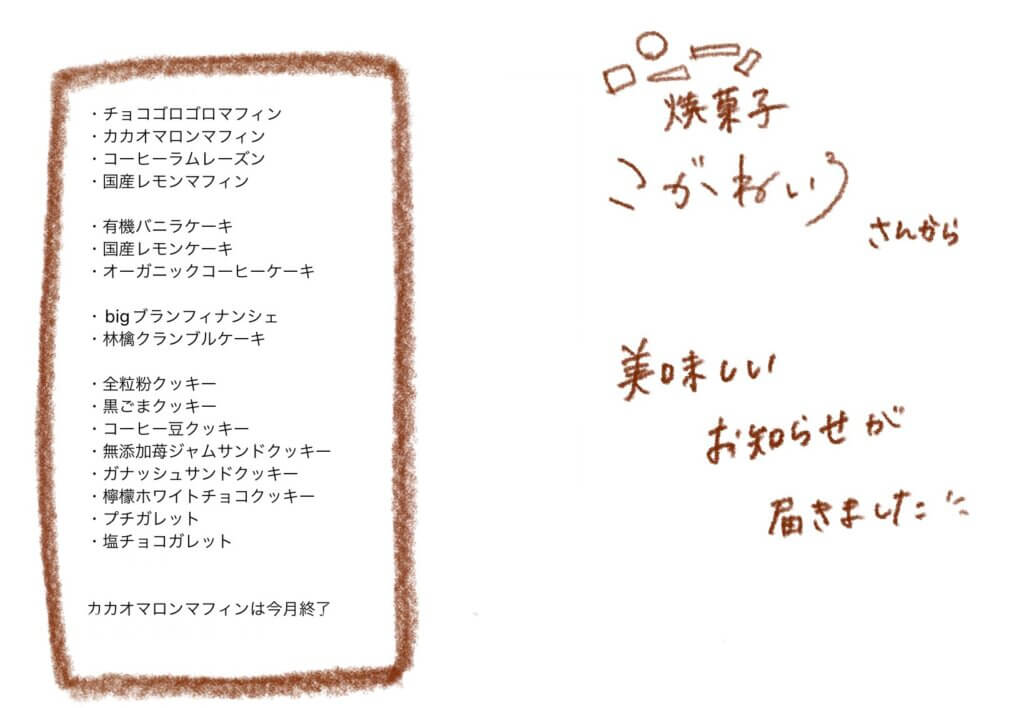 ・チョコゴロゴロマフィン
・カカオマロンマフィン
・コーヒーラムレーズン
・国産レモンマフィン
・有機バニラケーキ
・国産レモンケーキ
・オーガニックコーヒーケーキ
・bigブランフィナンシェ
・林檎クランブルケーキ
・全粒粉クッキー
・黒ごまクッキー
・コーヒー豆クッキー
・無添加苺ジャムサンドクッキー
・ガナッシュサンドクッキー
・檸檬ホワイトチョコクッキー
・プチガレット
・塩チョコガレット
カカオマロンマフィンは今月終了
焼菓子
こがねいろ
さんから
美味しい
お知らせが
届きました